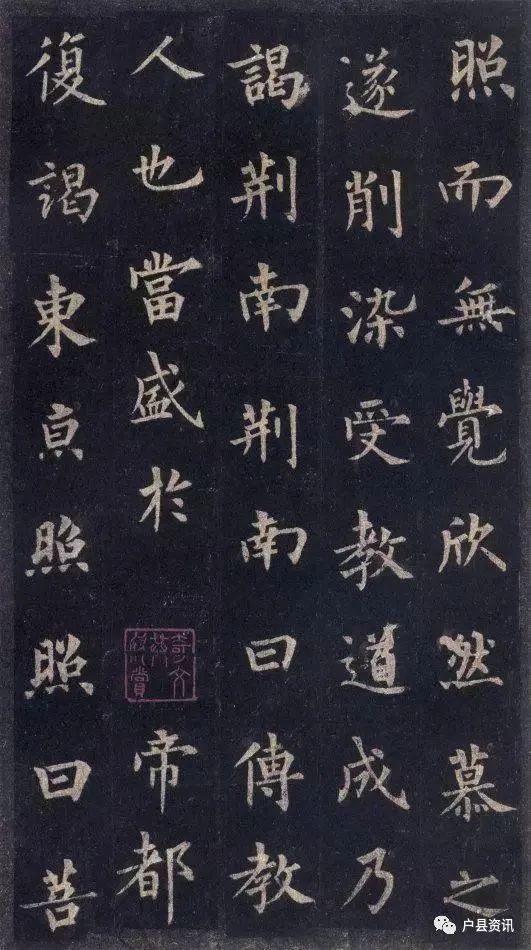 照而無覺欣然慕之
遂削染受教道成乃
謁荆南荆南曰傳教
人也當盛於帝都
復謁東京照照曰菩
奇文共欣賞
户县资讯